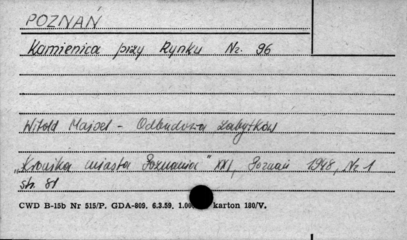 POZNAŃ
Kamienica przy Rynku Nr. 96
Witold Maisel - Odbudowa zabytków
"Kronika miasta Poznania" XXI, Poznań 1948, Nr 1
str. 81
CWD B-15b Nr 515/P. GDA-809, 6.3.59, 1.00 karton 180/V.